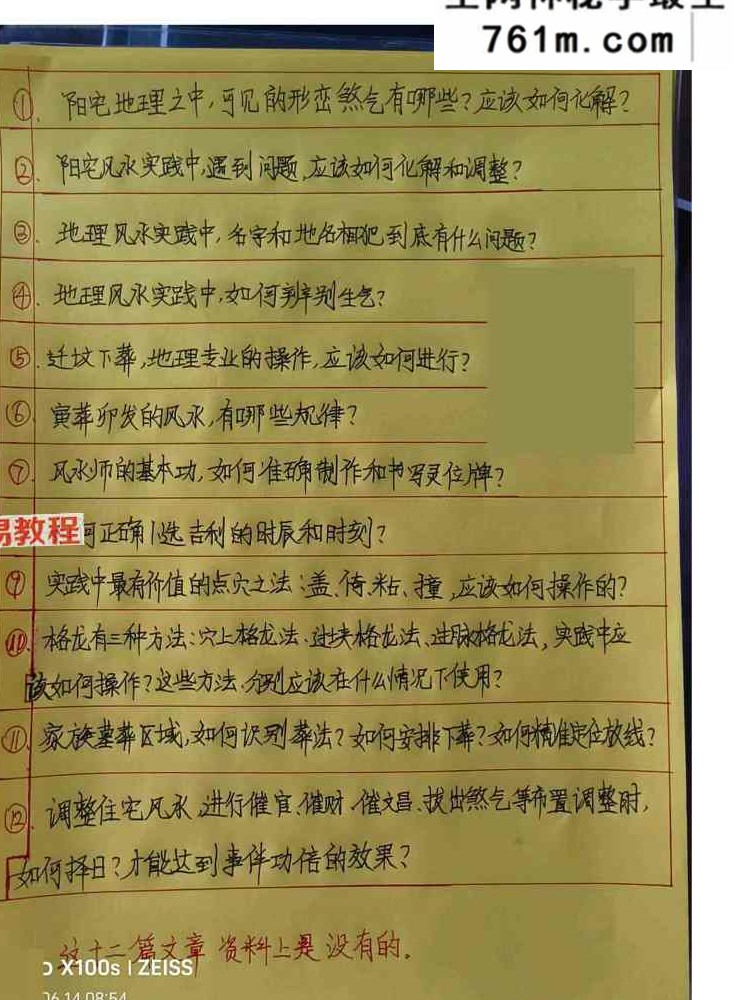 761m.com
①. 阳宅地理之中,可见的形峦煞气有哪些?应该如何化解?
②. 阳宅风水实践中,遇到问题,应该如何化解和调整?
③. 地理风水实践中,名字和地名相犯到底有什么问题?
④. 地理风水实践中,如何辨别生气?
⑤. 迁坟下葬,地理专业的操作,应该如何进行?
⑥. 寅葬卯发的风水,有哪些规律?
⑦. 风水师的基本功,如何准确制作和书写灵位牌?
易教程
何正确选吉利的时辰和时刻?
⑨. 实践中最有价值的点穴之法:盖、倚、粘、撞,应该如何操作的?
⑩. 格龙有三种方法:穴上格龙法、过块格龙法、过脉格龙法,实践中应
该如何操作?这些方法、分别应该在什么情况下使用?
⑪. 家族墓葬区域,如何识别葬法?如何安排下葬?如何精准定位放线?
⑫. 调整住宅风水,进行催官、催财、催文昌、拔出煞气等布置调整时,
如何择日?才能达到事伴功倍的效果?
这十二篇文章 资料上是没有的。
X100s | ZEISS
06.14 08:54